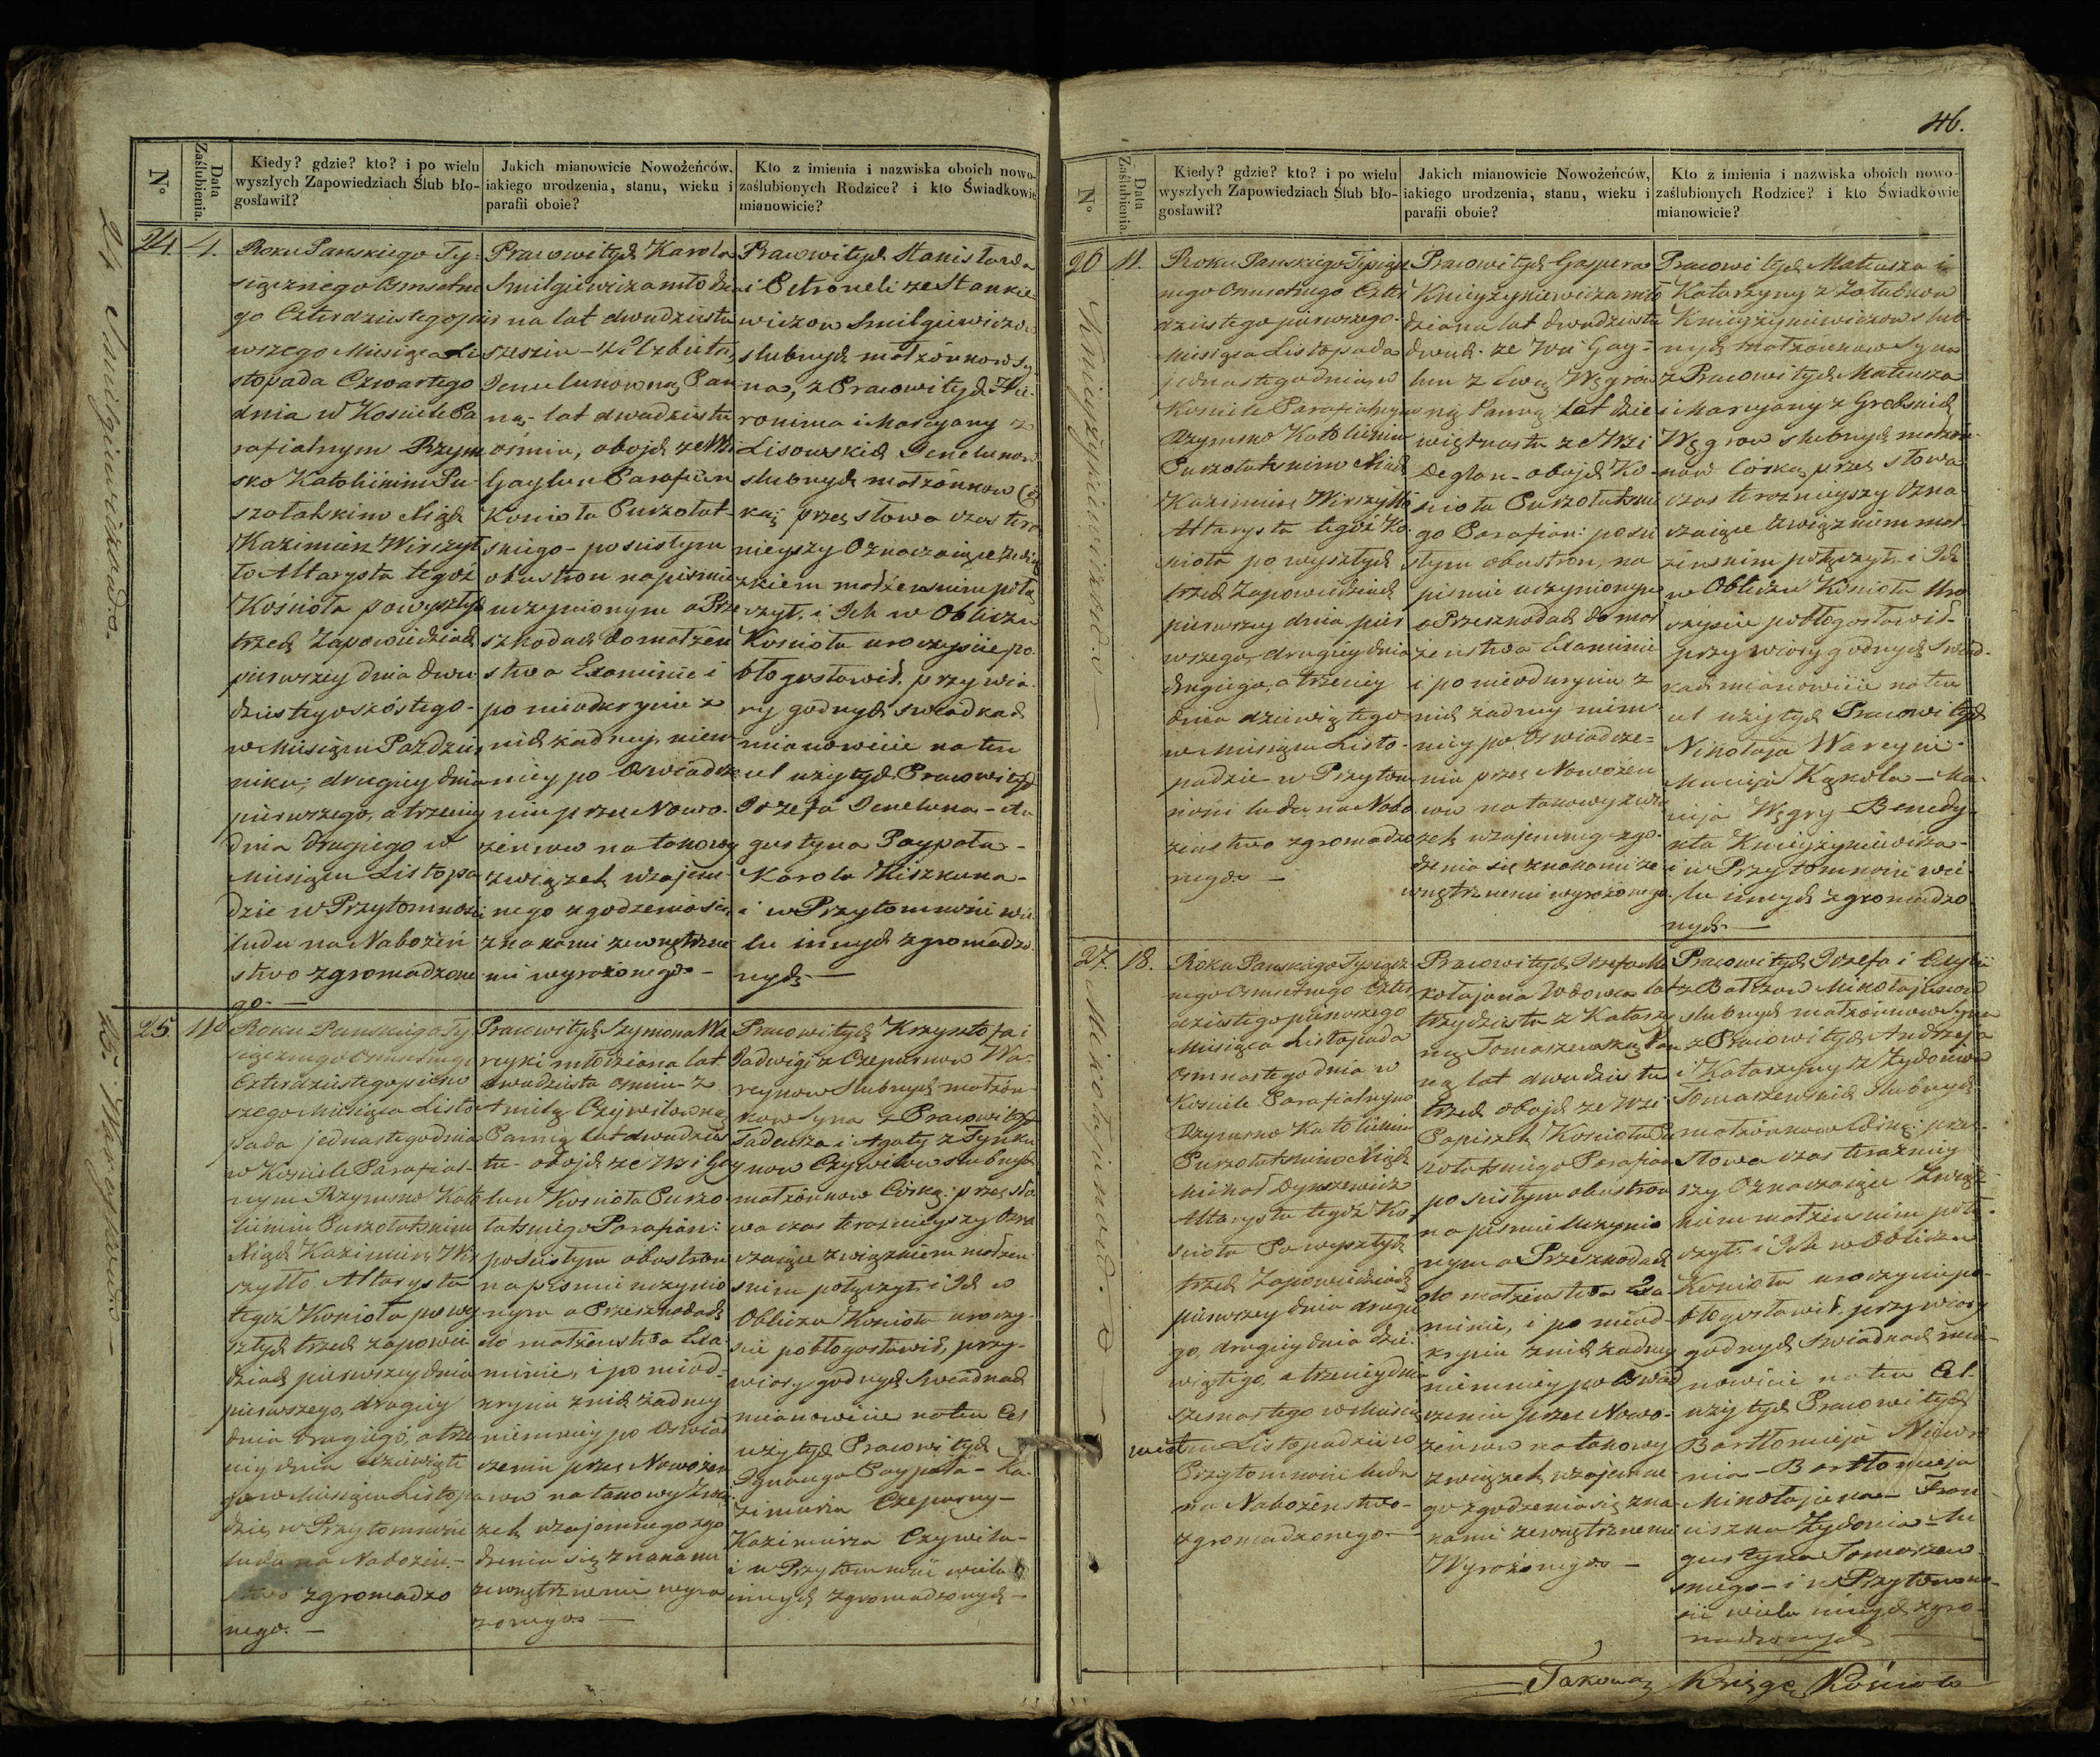 46.
No
Data Zaślubienia.
Kiedy? gdzie? kto? i po wielu
wyszłych Zapowiedziach Ślub bło-
gosławił?
Jakich mianowicie Nowożeńców,
iakiego urodzenia, stanu, wieku i
parafii oboie?
Kto z imienia i nazwiska oboich nowo-
zaślubionych Rodzice? i kto Świadkowie
mianowicie?
24.
4.
Roku Panskiego Ty-
siącznego Osmsetne
go Czterdziestego pier
wszego Miesiąca Li
stopada Czwartego
dnia w Kościele Pa
rafialnym Rzym
sko Katolickim Pu-
szołatskim Xiądz
Kazimierz Wirszył
ło Altarysta tegoż
Kościoła po wyszłych
trzech Zapowiedziach
pierwszey dnia dwu
dziestegoszóstego-
w Miesiącu Paździer
niku, drugiey dnia
pierwszego, a trzeciey
dnia drugiego w
Miesiącu Listopa
dzie w Przytomności
ludu na Nabożeń
stwo zgromadzone
go. —
Pracowitych Karola
Smilgiewicza młodzie
na lat dwudziestu
sześciu - z Elżbietą
Panną lat dwudziestu
ośmiu, obojch ze Wsi
Gaylun Parafian
Kościoła Puszołat-
skiego - po ścisłym
obustron na piśmie
uczynionym o Prze
szkodach do małżeń
stwa Examinie i
po nieodkryciu z
nich żadney, niem
niey po Oświadcze
niu przez Nowo-
żeńcow na takowy
związek wzajem
nego zgodzenia się
znakami zewnętrzne
mi wyrażonego -
Pracowitych Stanisława
i Petroneli ze Stankie
wiczow Smilgiewiczow
slubnych małżonkow Sy
na, z Pracowitych Hie-
ronima i Maryany z
Lisowskich
slubnych małżonkow Cór
ką przez słowa czas tera
znieyszy Oznaczaiące Zwią
zkiem małżenskim połą
czył, i Ich w Obliczu
Kościoła uroczyście po
błogosławił, przy wia
ry godnych świadkach
mianowicie na ten
cel użytych Pracowitych
Jozefa - Au
gustyna Paypała -
Karola Kiszkuna -
i w Przytomności wie
lu innych zgromadzo
nych. —
25.
11
Roku Panskiego Ty
siącznego Osmsetnego
Czterdziestego pierw
szego Miesiąca Listo
pada jednastego dnia
w Kościele Parafial-
nym Rzymsko Kato
lickim Puszołatskim
Xiądz Kazimierz Wir
szyłło Altarysta
tegoż Kościoła po wy
szłych trzech zapowie
dziach pierwszey dnia
pierwszego, drugiey
dnia drugiego, a trze
ciey dnia dziewiąte
go w Miesiącu Listopa
dzie w Przytomności
ludu na Nabożeń-
stwo zgromadzo
nego. —
Pracowitych Szymona Wa
reyki młodziana lat
dwudziestu osmiu - z
Panną lat dwudzies
tu - obojch ze Wsi Gay
lun Kościoła Puszo
łatskiego Parafian:
po ścisłym obustron
na piśmie uczynio
nym o Przeszkodach
do małżeństwa Exa
minie, i po nieod-
kryciu z nich żadney
niemniey po Oświad
czeniu przez Nowożeń
cow na takowy Zwią
zek wzajemnego zgo
dzenia się znakami
zewnętrznemi wyra
żonego —
Pracowitych Krzysztofa i
Jadwigi z Czepurnow Wa-
reykow Slubnych małżon
kow Syna z Pracowitych
Tadeusza i Agaty z
slubnych
małżonkow Córką: przez sło
wa czas teraznieyszy Ozna
czaiące związkiem małżen
skim połączył, i Ich w
Obliczu Kościoła uroczy-
ście pobłogosławił, przy-
wiary godnych Swiadkach
mianowicie na ten Cel
użytych Pracowitych
Ignacego Paypała - Ka-
zimierza Czepurny -
Kazimierza
i w Przytomności wielu
innych Zgromadzonych -
26
11.
Roku Panskiego Tysiącz
nego Osmsetnego Czter
dziestego pierwszego-
Miesiąca Listopada
jednastego dnia, w
Kościele Parafialnym
Rzymsko Katolickim
Puszołatskim Xiądz
Kazimierz Wirszyłło
Altarysta tegoż Ko-
ścioła po wyszłych
trzech Zapowiedziach
pierwszey dnia pier
wszego, drugiey dnia
drugiego, a trzeciey
dnia dziewiątego
w Miesiącu Listo-
padzie w Przytom
ności ludu na Nabo
żeństwo zgromadzo
nego. —
Pracowitych Gaspera
Kniażyniewicza mło
dziana lat dwudziestu
dwuch - ze Wsi Gay-
lun z Ewą Węgrow
ną Panną lat dzie
więtnastu ze Wsi
Deglan - obojch Ko-
ścioła Puszołatskie
go Parafian: po ści
słym obustron, na
piśmie uczynionym
o Przeszkodach do mał
żeństwa Examinie
i po nieodkryciu z
nich żadney niem-
niey po Oświadcze=
niu przez Nowożeń
cow na takowy zwią
zek wzajemnego zgo-
dzenia się znakami ze
wnętrznemi wyrażonego.
Pracowitych Mateusza i
Katarzyny z Załubow
Kniażyniewiczow slub-
nych małżonkow Syna
z Pracowitych Mateusza
i Maryany z Grebskich
Węgrow slubnych małżon-
kow Córką, przez słowa
czas teraznieyszy Ozna-
czaiące Związkiem mał-
żenskim połączył, i Ich
w Obliczu Kościoła Uro
czyście pobłogosławił-
przy wiary godnych Swiad-
kach mianowicie na ten
cel użytych Pracowitych
Nikołaja Wareyki-
Macieja Kąkola - Ma-
cieja Węgry - Benedy-
kta Kniażyniewicza -
i w Przytomności wie-
lu innych zgromadzo
nych. —
27.
18.
Roku Panskiego Tysiącz
nego Osmsetnego Czter
dziestego pierwszego
Miesiąca Listopada
Osmnastego dnia w
Kościele Parafialnym
Rzymsko Katolickim
Puszołatskim Xiądz
Michał Dynszewicz
Altarysta tegoż Ko
ścioła Po wyszłych
trzech Zapowiedziach
pierwszey dnia drugie
go, drugiey dnia dzie-
wiątego, a trzeciey dnia
szesnastego w Miesią
cu Listopadzie w
Przytomności ludu
na Nabożeństwo-
zgromadzonego —
Pracowitych Jozefa Mi
kołajuna Wdowca lat
trzydziestu z Katarzy
ną Tomaszewską Pan
ną lat dwudziestu
trzech obojch ze Wsi
Papiszek Kościoła Pu
szołatskiego Parafian
po ścisłym obustron
na piśmie Uczynio
nym o Przeszkodach
do małżeństwa Exa
minie, i po nieod-
kryciu z nich żadney
niemniey po Oswiad
czeniu przez Nowo-
żeńcow na takowy
Związek wzajemne
go zgodzenia się zna
kami zewnętrznemi
Wyrażonego —
Pracowitych Jozefa i
z Bałzow Mikołajunow
slubnych małżonkow Syna
z Pracowitych Andrzeja
i Katarzyny z Żydoniow
Tomaszewskich Slubnych
małżonkow Córką: przez-
Słowa czas terażniey
szy Oznaczaiące Związ-
kiem małżenskim połą-
czył, i Ich w Obliczu
Kościoła uroczyście po-
błogosławił, przy wiary
godnych Swiadkach mia-
nowicie na ten Cel-
użytych Pracowitych
Bartłomieja
Bartłomieja
Mikołajuna - Fran
ciszka Żydonia - Au
gustyna Tomaszew
skiego - i w Przytomno-
ści wielu innych zgro-
madzonych —
Takową Księgę Kościoła